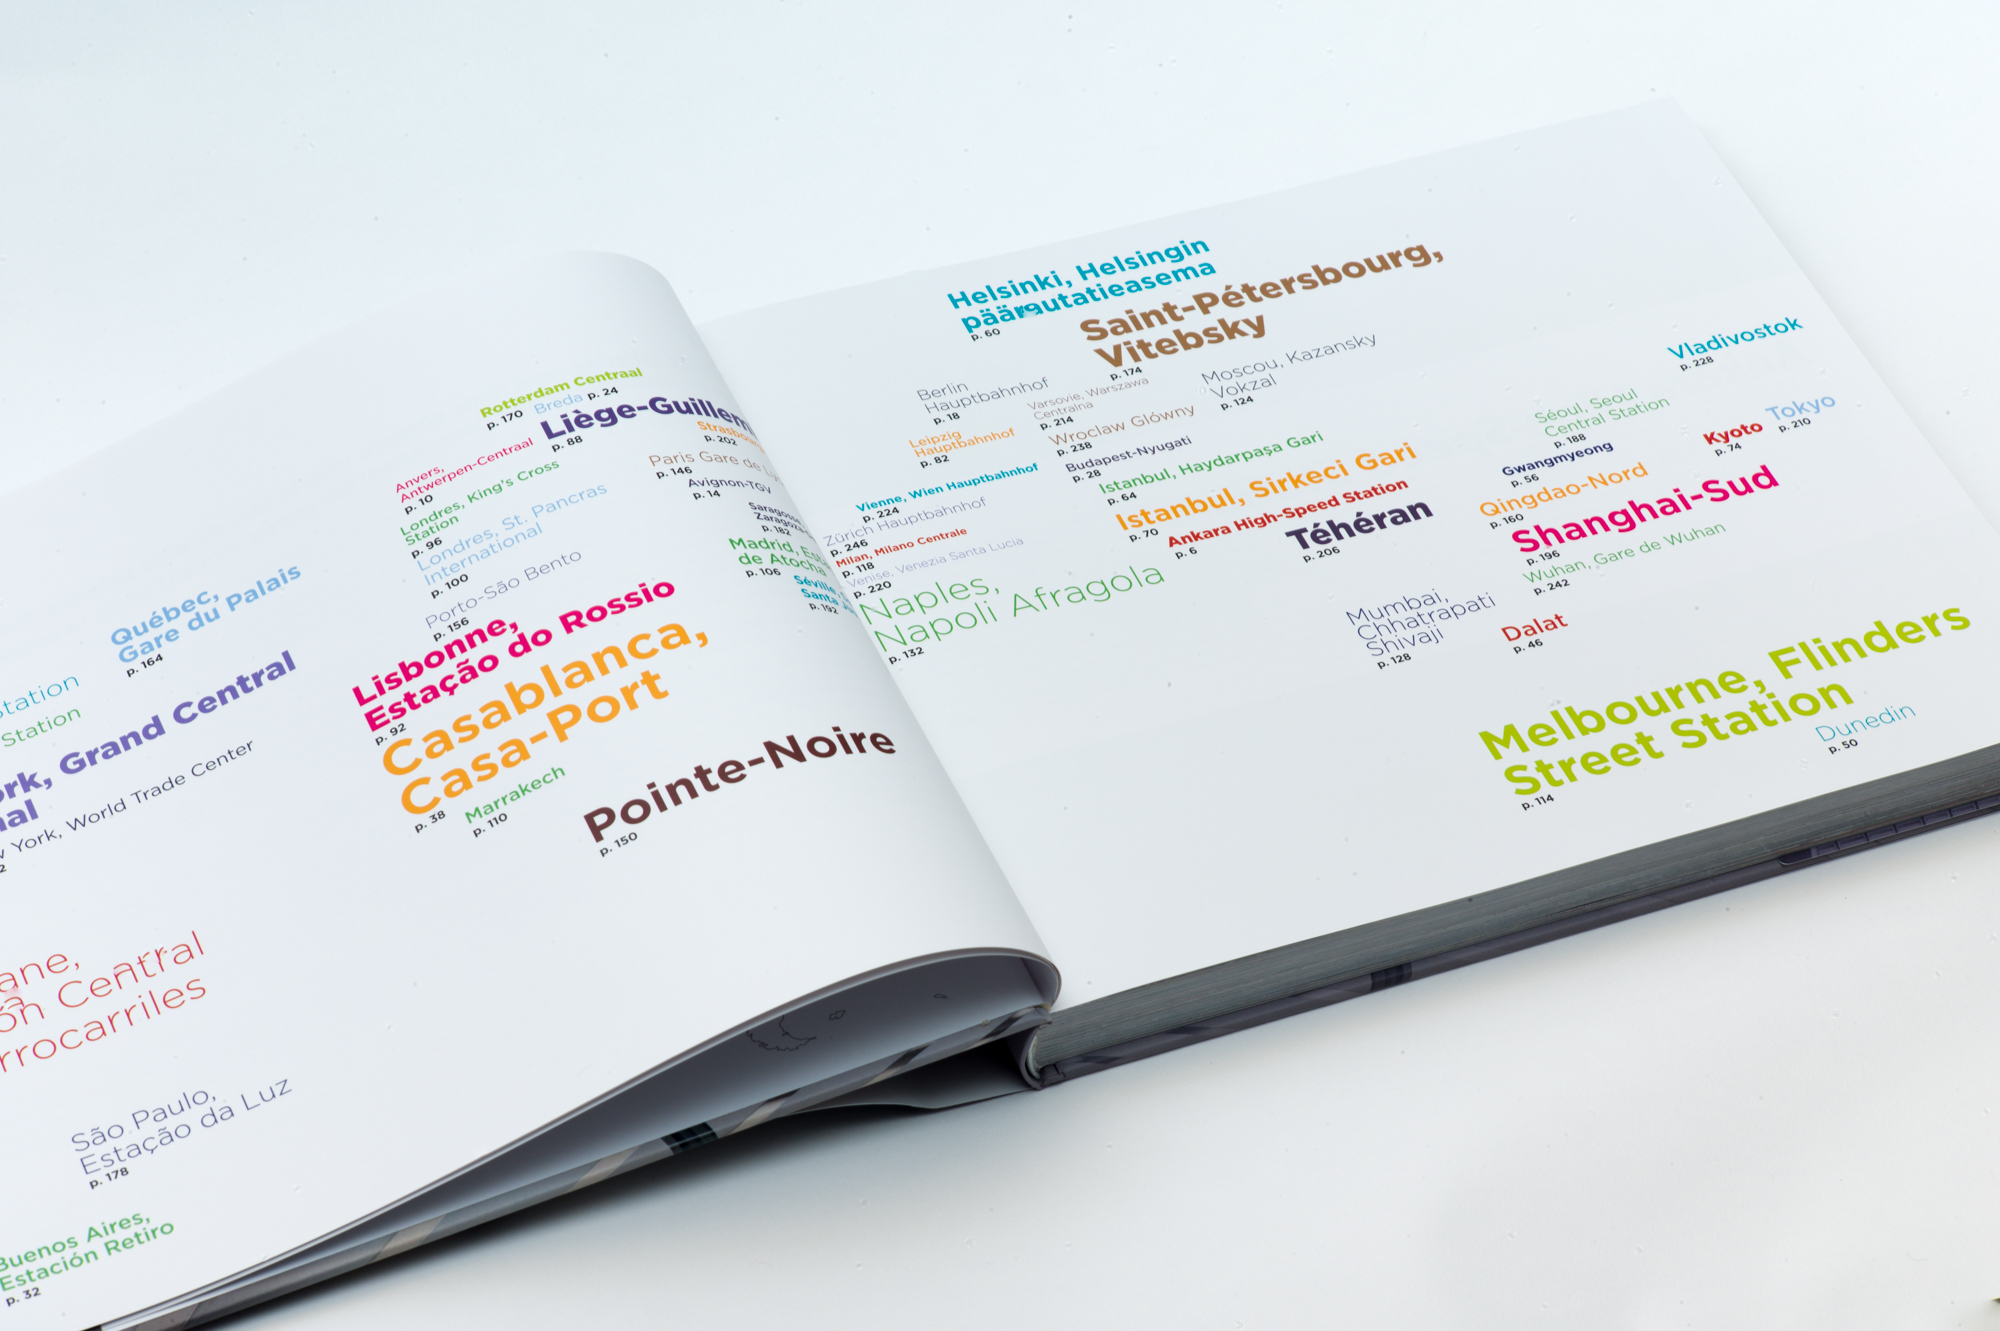 Québec,
Gare du Palais
p. 164
Station
Station
Grand Central
York, World Trade Center
São Paulo,
Estação da Luz
p. 178
Buenos Aires,
Estación Retiro
p. 32
Rotterdam Centraal
p. 170
Breda p. 24
Liège-Guillem
p. 88
Anvers,
Antwerpen-Centraal
p. 10
Londres, King's Cross
Station
p. 96
Londres, St. Pancras
International
p. 100
Porto-São Bento
p. 156
Lisbonne,
Estação do Rossio
p. 92
Casablanca,
Casa-Port
p. 38
Marrakech
p. 110
Pointe-Noire
p. 150
p. 202
Paris Gare de
p. 146
Avignon-TGV
p. 14
p. 182
Madrid,
de Atocha
p. 106
p. 192
Helsinki, Helsingin
päärautatieasema
p. 60
Saint-Pétersbourg,
Vitebsky
p. 174
Berlin
Hauptbahnhof
p. 18
Varsovie, Warszawa
Centralna
p. 214
Moscou, Kazansky
Vokzal
p. 124
Leipzig
Hauptbahnhof
p. 82
Wroclaw Glówny
p. 238
Budapest-Nyugati
p. 28
Vienne, Wien Hauptbahnhof
p. 224
Istanbul, Haydarpaşa Gari
p. 64
Zürich Hauptbahnhof
p. 246
Istanbul, Sirkeci Gari
p. 70
Milan, Milano Centrale
p. 118
Ankara High-Speed Station
p. 6
Venise, Venezia Santa Lucia
p. 220
Téhéran
p. 206
Naples,
Napoli Afragola
p. 132
Vladivostok
p. 228
Séoul, Seoul
Central Station
p. 188
Tokyo
p. 210
Kyoto
p. 74
Gwangmyeong
p. 56
Qingdao-Nord
p. 160
Shanghai-Sud
p. 196
Wuhan, Gare de Wuhan
p. 242
Mumbai,
Chhatrapati
Shivaji
p. 128
Dalat
p. 46
Melbourne, Flinders
Street Station
p. 114
Dunedin
p. 50